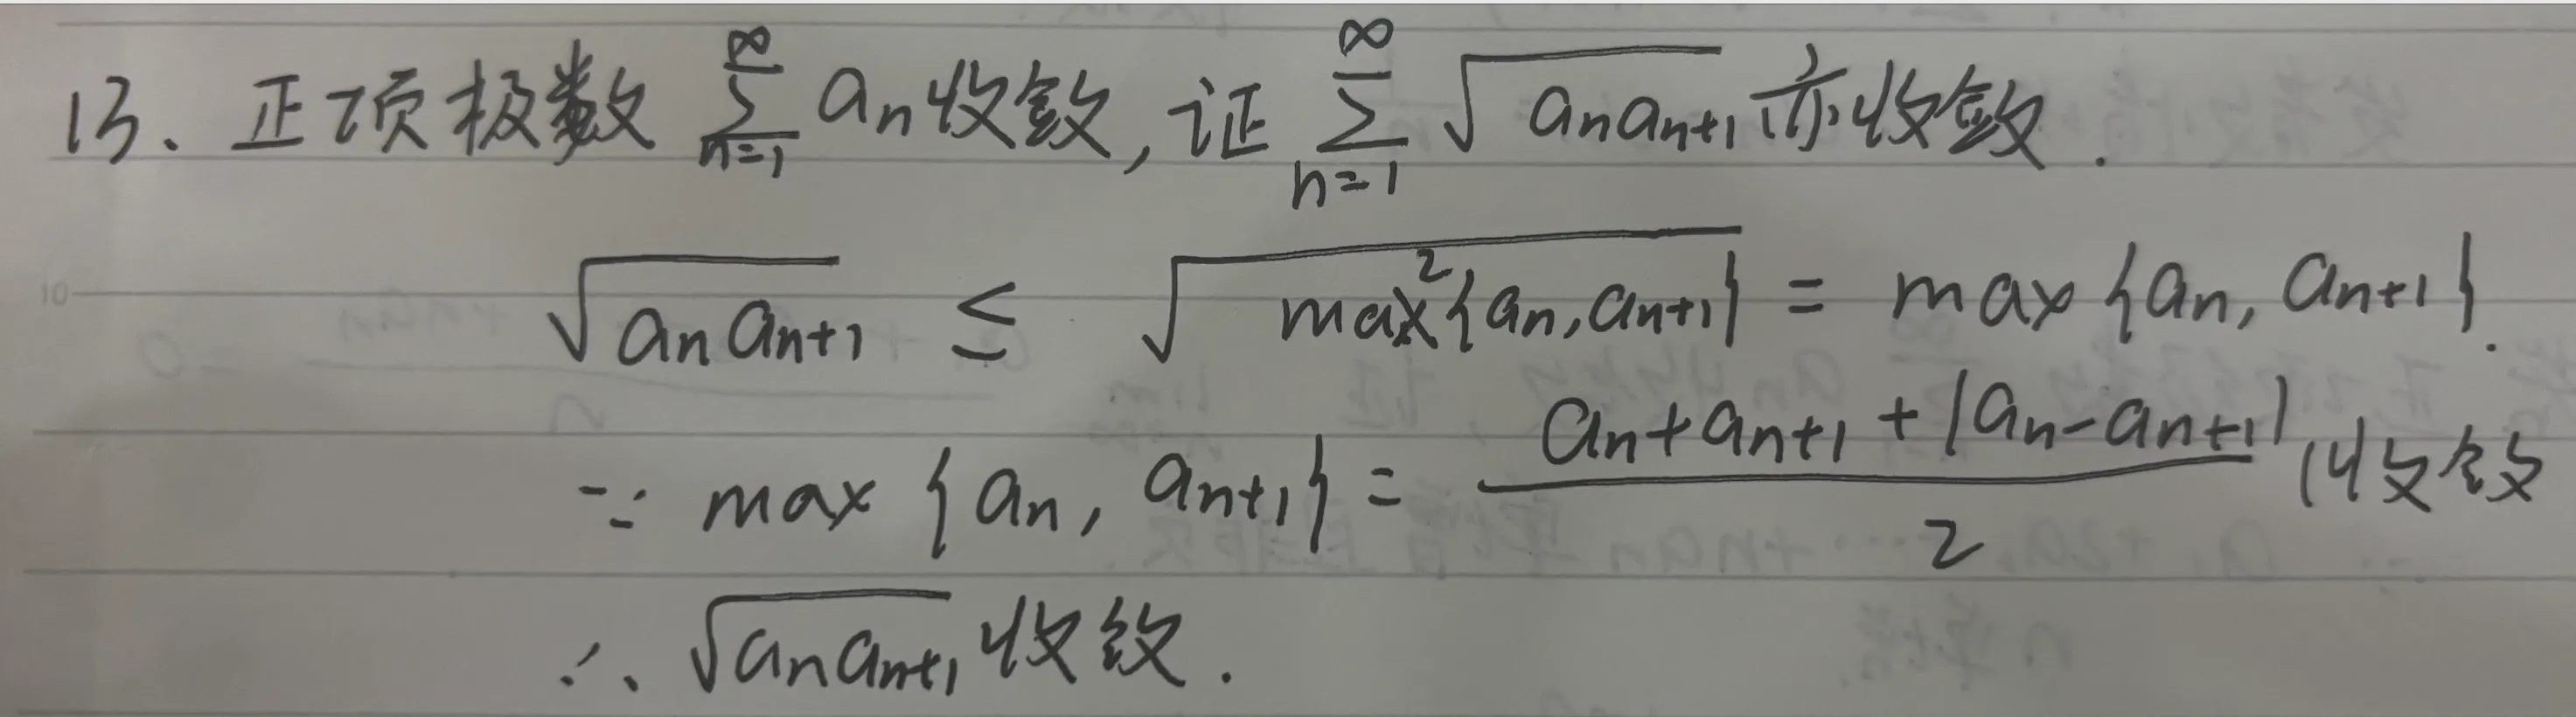 13、正项极数 ∑_{n=1}^{∞} a_n 收敛, 证 ∑_{n=1}^{∞} √(a_n a_{n+1}) 亦收敛.
√(a_n a_{n+1}) ≤ √(max²{a_n, a_{n+1}}) = max{a_n, a_{n+1}}.
10
∵ max{a_n, a_{n+1}} = (a_n + a_{n+1} + |a_n - a_{n+1}|)/2 收敛
∴ √(a_n a_{n+1}) 收敛.